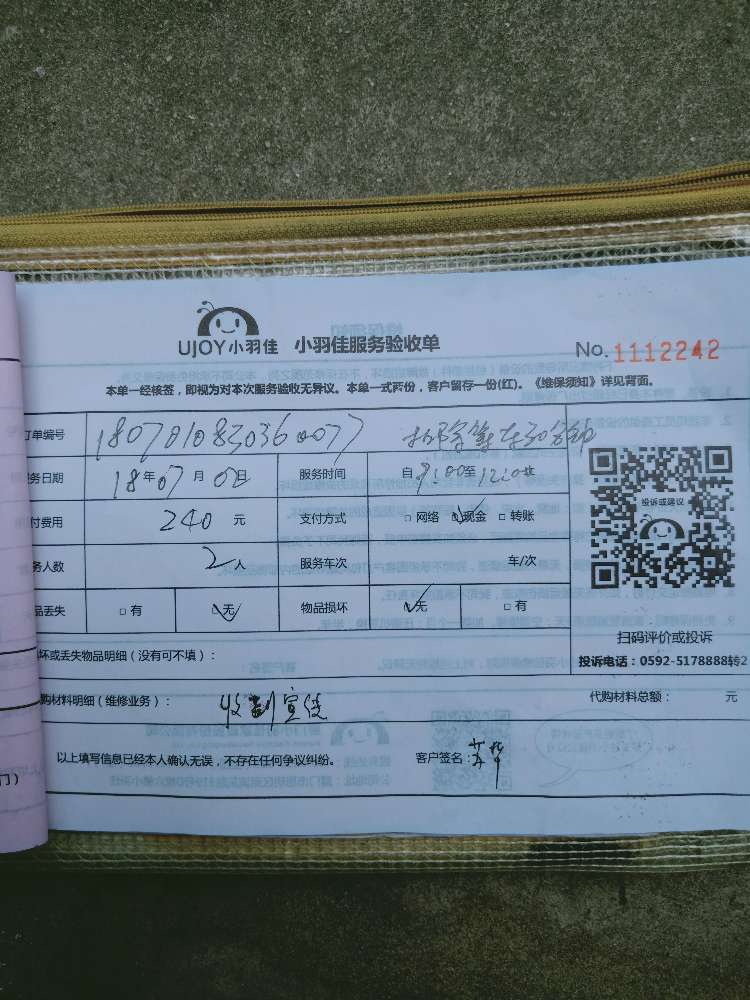 UJOY小羽佳 小羽佳服务验收单 No. 1112242
本单一经核签，即视为对本次服务验收无异议。本单一式两份，客户留存一份(红)。《维保须知》详见背面。
订单编号 1807010830360077
务日期 18年07月0日 服务时间 自9:00至12:0
付费用 240元 支付方式 □ 网络 ☑现金 □ 转账
务人数 2人 服务车次 车/次
品丢失 □ 有 ☑无 物品损坏 ☑无 □ 有
投诉或建议
扫码评价或投诉
投诉电话：0592-5178888转2
坏或丢失物品明细（没有可不填）：
购材料明细（维修业务）： 收到宣传 代购材料总额： 元
以上填写信息已经本人确认无误，不存在任何争议纠纷。 客户签名：
门）